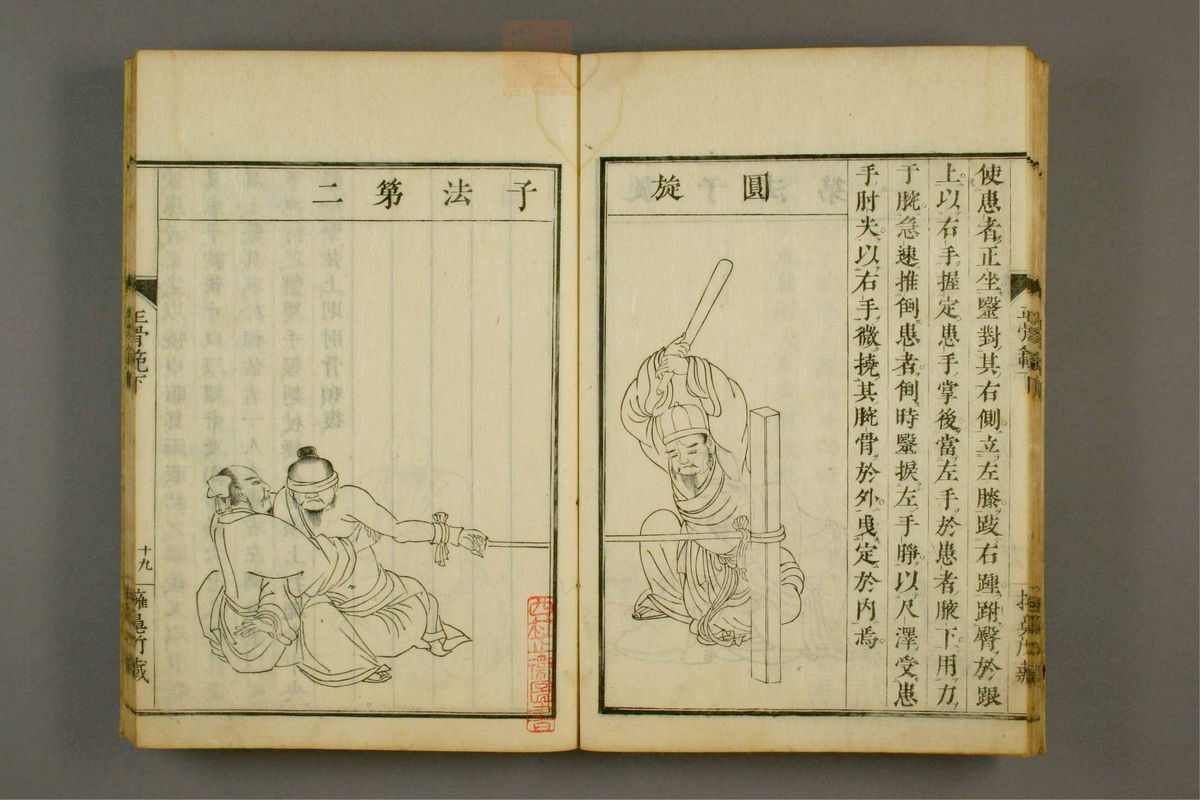 使患者正坐毉對其右側立左膝跂右踵跗臀於跟
上以右手握定患手掌後當左手於患者腋下用力
于腕急速推倒患者倒時毉捩左手睜以尺澤受患
手肘尖以右手微撓其腕骨於外曳定於内焉
圓旋
子法第二
正骨範下
十九